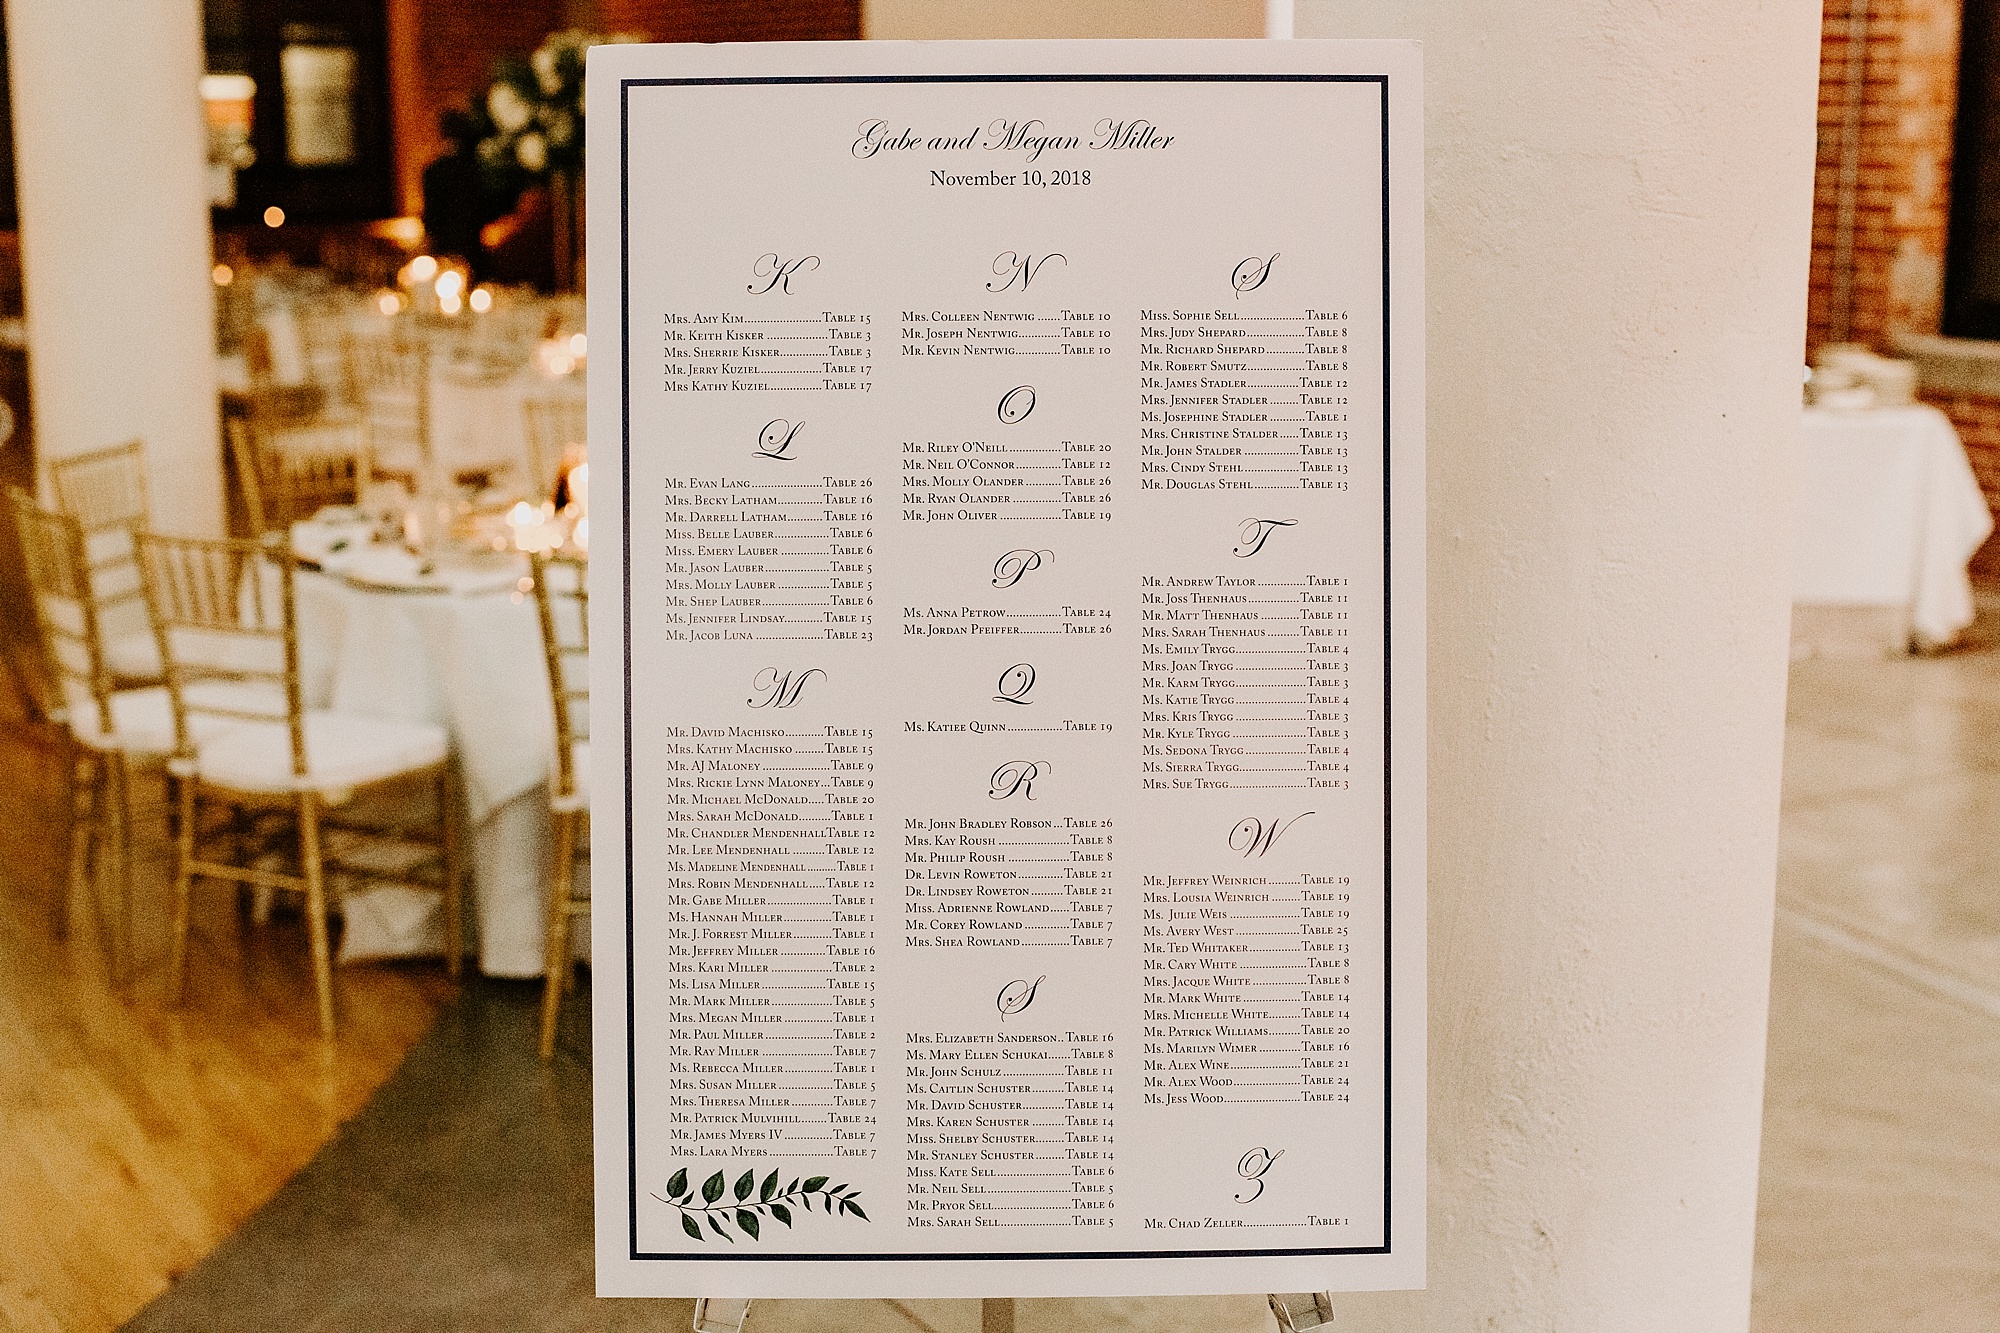 Gabe and Megan Miller
November 10, 2018
K
Mrs. Amy Kim........................Table 15
Mr. Keith Kisker ....................Table 3
Mrs. Sherrie Kisker...............Table 3
Mr. Jerry Kuziel...................Table 17
Mrs Kathy Kuziel................Table 17
L
Mr. Evan Lang......................Table 26
Mrs. Becky Latham..............Table 16
Mr. Darrell Latham...........Table 16
Miss. Belle Lauber.................Table 6
Miss. Emery Lauber ...............Table 6
Mr. Jason Lauber....................Table 5
Mrs. Molly Lauber ................Table 5
Mr. Shep Lauber.....................Table 6
Ms. Jennifer Lindsay............Table 15
Mr. Jacob Luna .....................Table 23
M
Mr. David Machisko............Table 15
Mrs. Kathy Machisko .........Table 15
Mr. AJ Maloney ....................Table 9
Mrs. Rickie Lynn Maloney...Table 9
Mr. Michael McDonald.....Table 20
Mrs. Sarah McDonald..........Table 1
Mr. Chandler MendenhallTable 12
Mr. Lee Mendenhall ..........Table 12
Ms. Madeline Mendenhall..........Table 1
Mrs. Robin Mendenhall.....Table 12
Mr. Gabe Miller....................Table 1
Ms. Hannah Miller...............Table 1
Mr. J. Forrest Miller............Table 1
Mr. Jeffrey Miller...............Table 16
Mrs. Kari Miller ...................Table 2
Ms. Lisa Miller.....................Table 15
Mr. Mark Miller...................Table 5
Mrs. Megan Miller ...............Table 1
Mr. Paul Miller.....................Table 2
Mr. Ray Miller ......................Table 7
Ms. Rebecca Miller...............Table 1
Mrs. Susan Miller.................Table 5
Mrs. Theresa Miller.............Table 7
Mr. Patrick Mulvihill........Table 24
Mr. James Myers IV ...............Table 7
Mrs. Lara Myers ....................Table 7
N
Mrs. Colleen Nentwig .......Table 10
Mr. Joseph Nentwig.............Table 10
Mr. Kevin Nentwig..............Table 10
O
Mr. Riley O'Neill................Table 20
Mr. Neil O'Connor..............Table 12
Mrs. Molly Olander ...........Table 26
Mr. Ryan Olander ...............Table 26
Mr. John Oliver ...................Table 19
P
Ms. Anna Petrow.................Table 24
Mr. Jordan Pfeiffer.............Table 26
Q
Ms. Katiee Quinn.................Table 19
R
Mr. John Bradley Robson...Table 26
Mrs. Kay Roush ......................Table 8
Mr. Philip Roush ...................Table 8
Dr. Levin Roweton................Table 21
Dr. Lindsey Roweton..........Table 21
Miss. Adrienne Rowland......Table 7
Mr. Corey Rowland ...............Table 7
Mrs. Shea Rowland................Table 7
S
Mrs. Elizabeth Sanderson..Table 16
Ms. Mary Ellen Schukai.......Table 8
Mr. John Schulz ...................Table 11
Ms. Caitlin Schuster..........Table 14
Mr. David Schuster.............Table 14
Mrs. Karen Schuster ...........Table 14
Miss. Shelby Schuster.........Table 14
Mr. Stanley Schuster.........Table 14
Miss. Kate Sell.......................Table 6
Mr. Neil Sell..........................Table 5
Mr. Pryor Sell.......................Table 6
Mrs. Sarah Sell......................Table 5
S
Miss. Sophie Sell....................Table 6
Mrs. Judy Shepard..................Table 8
Mr. Richard Shepard............Table 8
Mr. Robert Smutz..................Table 8
Mr. James Stadler...............Table 12
Mrs. Jennifer Stadler.........Table 12
Ms. Josephine Stadler ...........Table 1
Mrs. Christine Stalder......Table 13
Mr. John Stalder ................Table 13
Mrs. Cindy Stehl.................Table 13
Mr. Douglas Stehl..............Table 13
T
Mr. Andrew Taylor ..............Table 1
Mr. Joss Thenhaus................Table 11
Mr. Matt Thenhaus .............Table 11
Mrs. Sarah Thenhaus ..........Table 11
Ms. Emily Trygg......................Table 4
Mrs. Joan Trygg ......................Table 3
Mr. Karm Trygg......................Table 3
Ms. Katie Trygg.......................Table 4
Mrs. Kris Trygg ......................Table 3
Mr. Kyle Trygg .......................Table 3
Ms. Sedona Trygg...................Table 4
Ms. Sierra Trygg.....................Table 4
Mrs. Sue Trygg........................Table 3
W
Mr. Jeffrey Weinrich..........Table 19
Mrs. Lousia Weinrich .........Table 19
Ms. Julie Weis ......................Table 19
Ms. Avery West....................Table 25
Mr. Ted Whitaker................Table 13
Mr. Cary White .....................Table 8
Mrs. Jacque White.................Table 8
Mr. Mark White ..................Table 14
Mrs. Michelle White..........Table 14
Mr. Patrick Williams..........Table 20
Ms. Marilyn Wimer .............Table 16
Mr. Alex Wine .....................Table 21
Mr. Alex Wood.....................Table 24
Ms. Jess Wood........................Table 24
Z
Mr. Chad Zeller....................Table 1